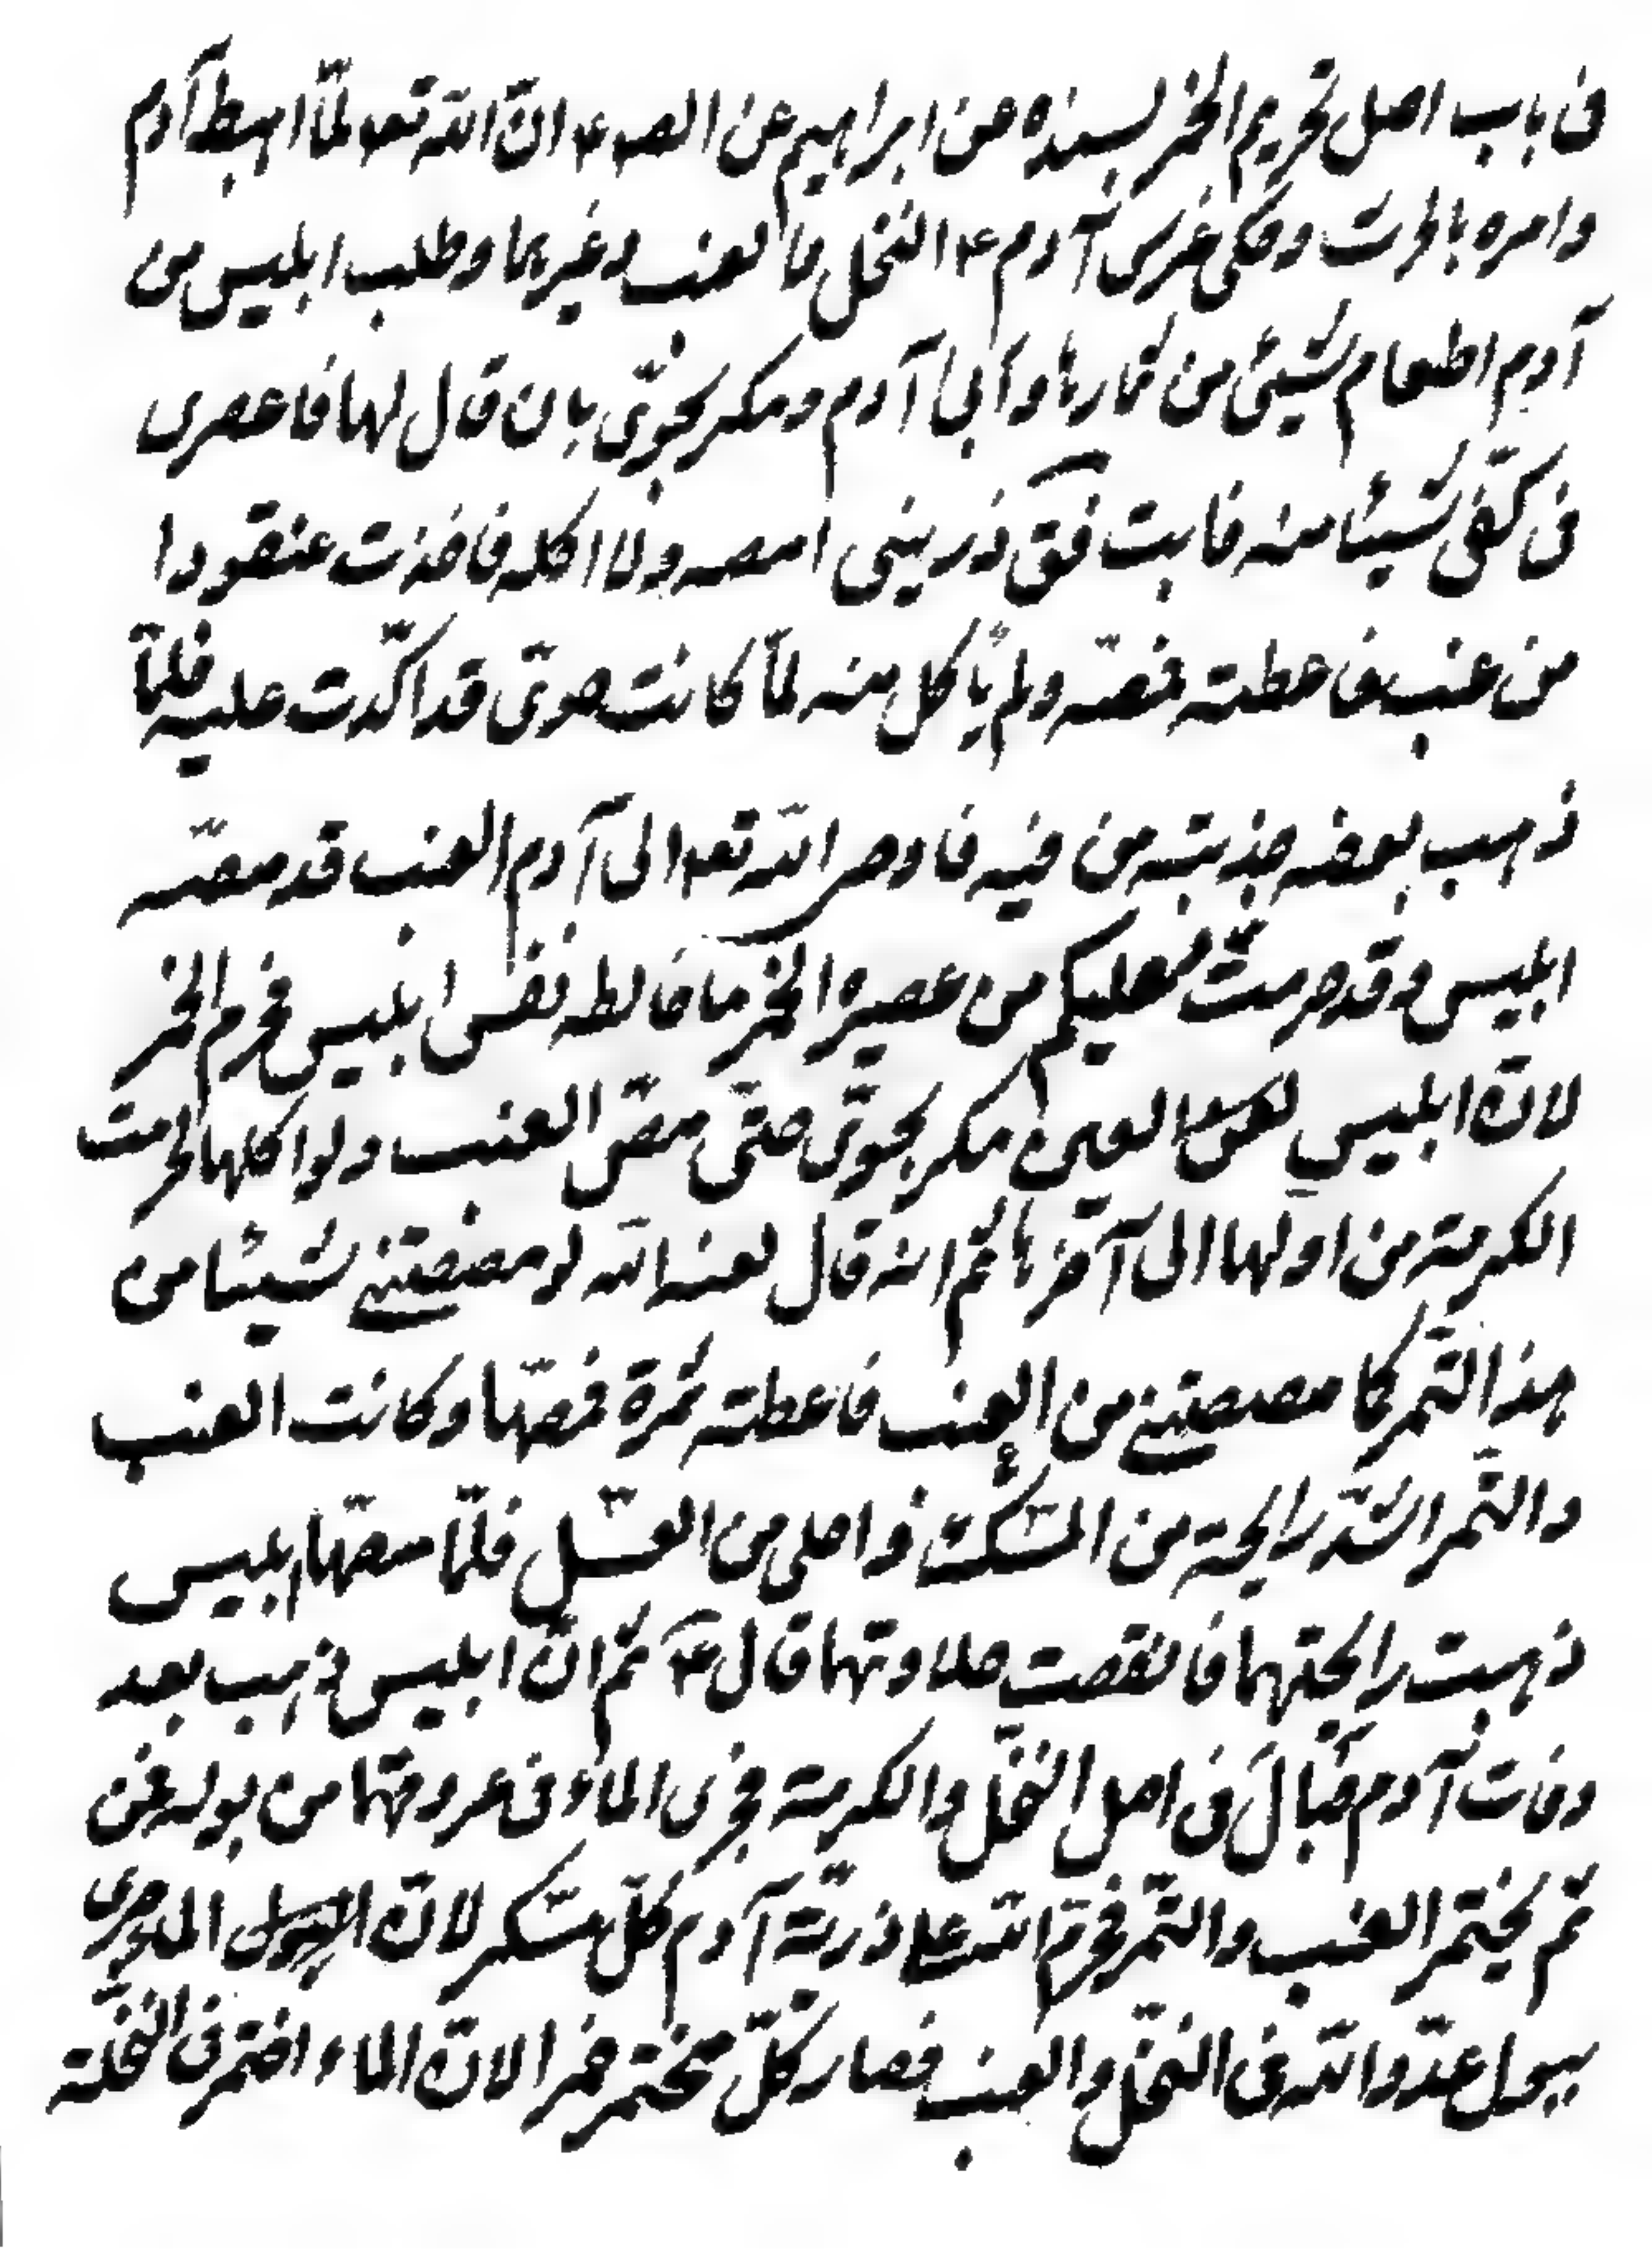 فى باب اصل تحريم الخمر بسنده عن ابراهيم عن الصـ ع ان الله تعـ لمّا اهبط آدم
وامره بالحرث وحكى غرس آدم ع النخل والعنب وغيرهما وطلب ابليس من
آدم اطعام شيئ من ثمارها وابى آدم ومكر بحوّى بان قال لها فاعصرى
فى كفّى شيئا منه فابت فقـ ذرينى امصه ولا اكله فاخذت عنقودا
من عنب فاعطته فمصّه ولم ياكل منه لمّا كانت حوّى قد اكّدت عليه فلمّا
ذهب بعضه جذبته من فيه فاوحى الله تعـ الى آدم العنب قد مصّه
ابليس وقد حرمت عليكم من عصيره الخمر ما خالطه نفس ابليس فحرم الخمر
لانّ ابليس العين مكر بحوّى حتّى مصّ العنب ولو اكلها لحرمت
الكرمة من اولها الى آخرها ثم انه قال لعنه الله لو مصصتينى شيئا من
هذا التمر كما مصصتينى من العنب فاعطته تمرة فمصّها وكانت العنب
والتمر اشدّ رايحة من المسك واحلى من العسل فلمّا مصّها ابليس
ذهبت رايحتهما فانقصت حلاوتهما قال ع ثم انّ ابليس ذهب بعد
وفات آدم فبال فى اصل النخل والكرمة فجرى الماء فى عروقهما من بوله فمن
ثم يختمر العنب والتمر فحرّم الله على ذريّة آدم كلّ مسكر لانّ الماء جرى
ببول عدّو الله فى النخل والعنب فصار كلّ مختمر خمرا لانّ الماء اختمر فى النخلة